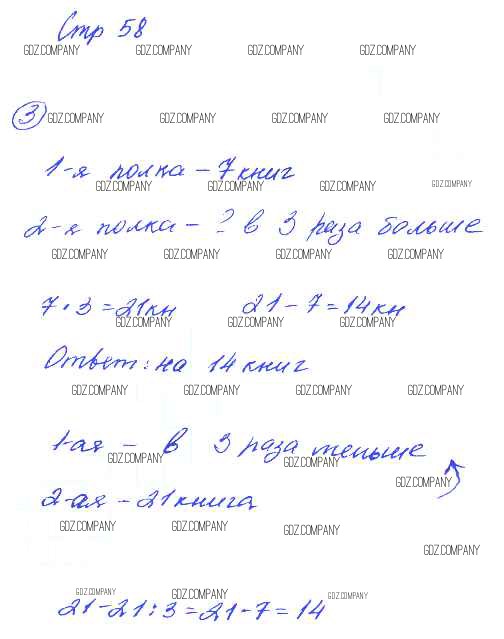 Стр 58
GDZ.COMPANY GDZ.COMPANY GDZ.COMPANY GDZ.COMPANY
3 GDZ.COMPANY GDZ.COMPANY GDZ.COMPANY GDZ.COMPANY
1-я полка - 7 книг
GDZ.COMPANY GDZ.COMPANY GDZ.COMPANY GDZ.COMPANY
2-я полка - ? в 3 раза больше
GDZ.COMPANY GDZ.COMPANY GDZ.COMPANY GDZ.COMPANY
7 · 3 = 21кн 21 - 7 = 14кн
GDZ.COMPANY GDZ.COMPANY GDZ.COMPANY
Ответ: на 14 книг
GDZ.COMPANY GDZ.COMPANY GDZ.COMPANY GDZ.COMPANY
1-ая - в 3 раза меньше
GDZ.COMPANY GDZ.COMPANY
GDZ.COMPANY
2-ая - 21 книга
GDZ.COMPANY GDZ.COMPANY GDZ.COMPANY
GDZ.COMPANY
GDZ.COMPANY GDZ.COMPANY GDZ.COMPANY
21 - 21 : 3 = 21 - 7 = 14